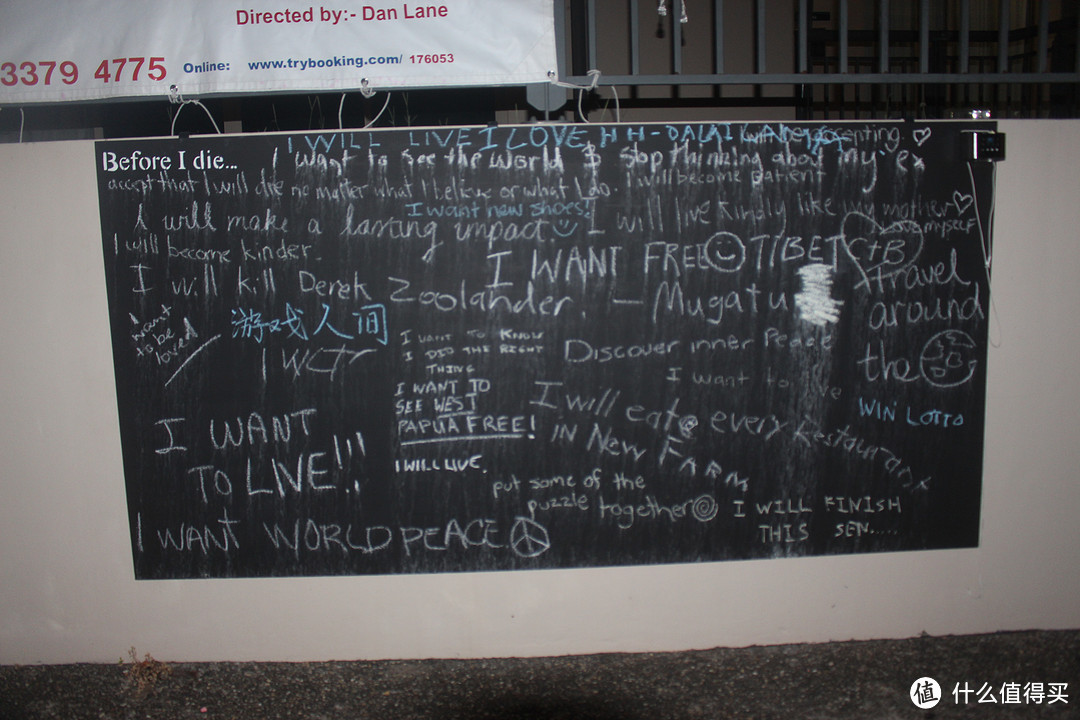 Directed by:- Dan Lane
3379 4775 Online: www.trybooking.com/ 176053
Before I die...
I WILL LIVE I LOVE HH-DALAI LAMA
I want to see the world & stop thinking about my ex
accept that I will die no matter what I believe or what I do. I will become patient
I want new shoes!
I will make a lasting impact. I will live kindly like my mother
Love myself
I will become kinder.
I WANT FREE TIBET C+B
I will kill Derek Zoolander. - Mugatu
Travel
around
the
I
want
to be
loved
游戏人间
I WANT TO KNOW
I DID THE RIGHT
THING
Discover inner Peace
I want to
I WANT TO
SEE WEST
PAPUA FREE!
I WILL LIVE.
I will eat @ every Restaurant
IN NEW FARM
WIN LOTTO
I WANT
TO LIVE!!!
put some of the
puzzle together
I WILL FINISH
THIS SEN.....
I WANT WORLD PEACE
值 什么值得买